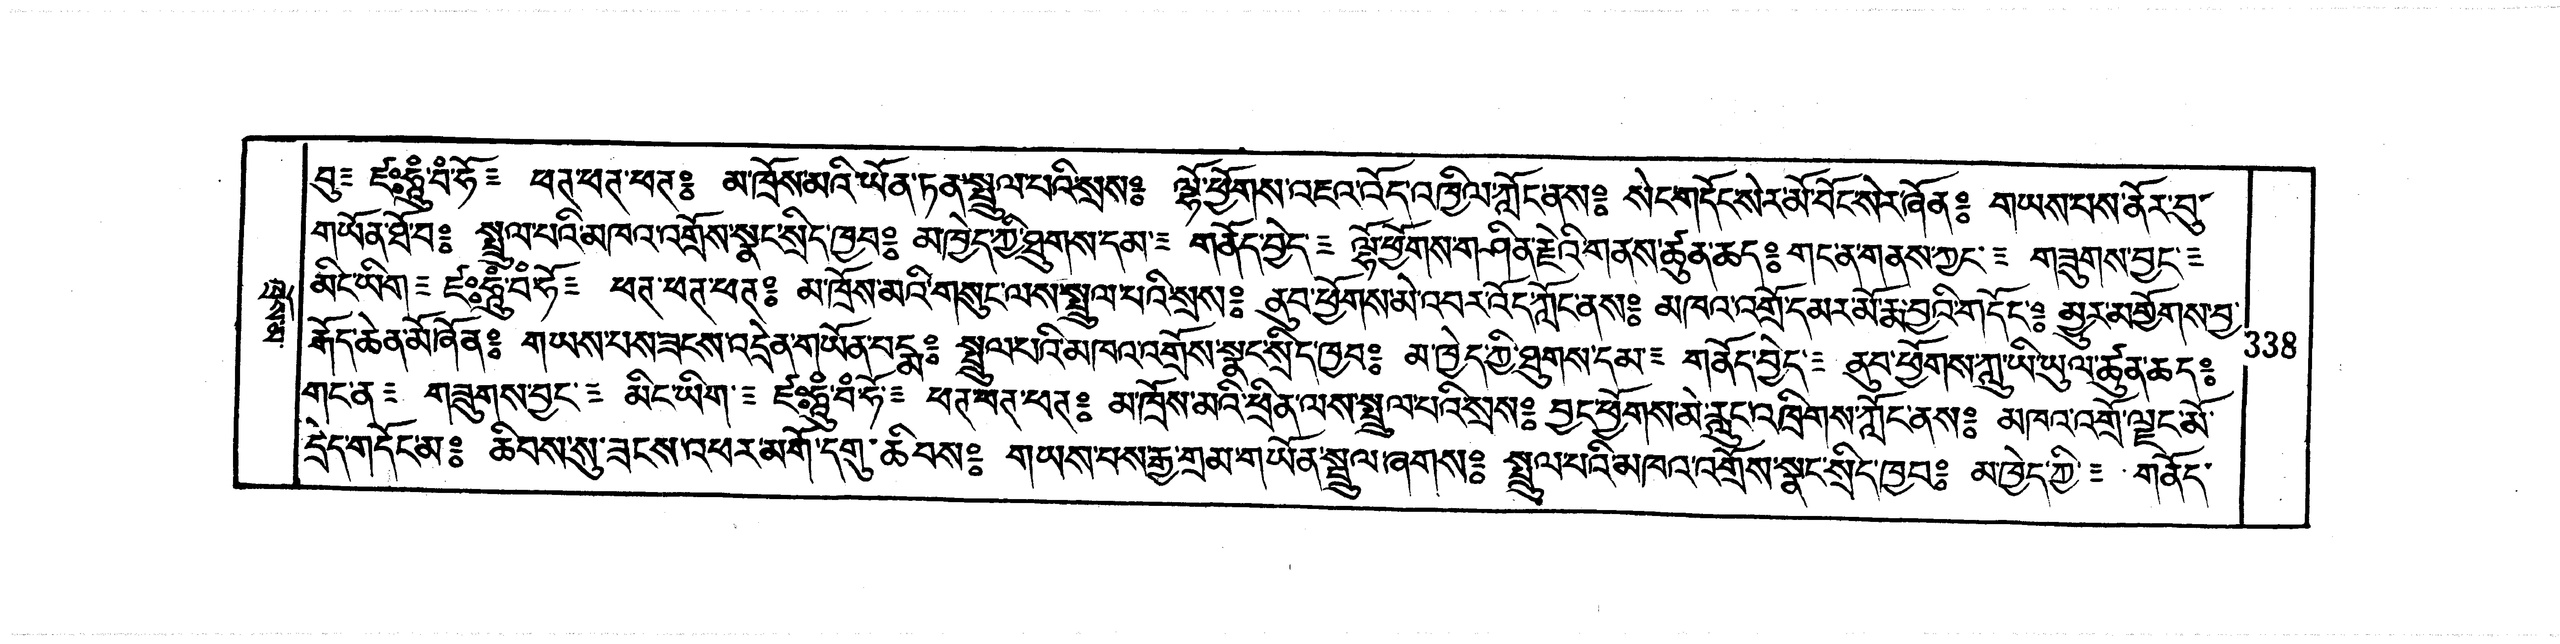 བུ༴ ཛཿཧཱུྃ་བཾ་ཧོ༴ ཕཊ་ཕཊ་ཕཊ༔ མ་ཁྲོས་མའི་ཡོན་ཏན་སྤྲུལ་པའི་སྲས༔ ལྷོ་ཕྱོགས་འཇའ་འོད་འཁྱིལ་ཀློང་ནས༔ སེང་གདོང་སེར་མོ་བོང་སེར་ཞོན༔ གཡས་པས་ནོར་བུ་
གཡོན་ཐོབ༔ སྤྲུལ་པའི་མཁའ་འགྲོས་སྣང་སྲིད་ཁྱབ༔ མ་ཁྱེད་ཀྱི་ཐུགས་དམ་༴ གནོད་བྱེད་༴ ལྷོ་ཕྱོགས་གཤིན་རྗེའི་གནས་ཚུན་ཆད༔ གང་ན་གནས་ཀྱང་༴ གཟུགས་བྱང་༴
མིང་ཡིག༴ ཛཿཧཱུྃ་བཾ་ཧོ༴ ཕཊ་ཕཊ་ཕཊ༔ མ་ཁྲོས་མའི་གསུང་ལས་སྤྲུལ་པའི་སྲས༔ ནུབ་ཕྱོགས་མེ་འབར་འོད་ཀློང་ནས༔ མཁའ་འགྲོ་དམར་མོ་རྨ་བྱའི་གདོང་༔ མྱུར་མགྱོགས་བྱ་
རྒོད་ཆེན་མོ་ཞོན༔ གཡས་པས་ཟངས་འདྲེན་གཡོན་པདྨ༔ སྤྲུལ་པའི་མཁའ་འགྲོས་སྣང་སྲིད་ཁྱབ༔ མ་ཁྱེད་ཀྱི་ཐུགས་དམ༴ གནོད་བྱེད་༴ ནུབ་ཕྱོགས་ཀླུ་ཡི་ཡུལ་ཚུན་ཆད༔
338
གང་ན༴ གཟུགས་བྱང་༴ མིང་ཡིག་༴ ཛཿཧཱུྃ་བཾ་ཧོ་༴ ཕཊ་ཕཊ་ཕཊ༔ མ་ཁྲོས་མའི་ཕྲིན་ལས་སྤྲུལ་པའི་སྲས༔ བྱང་ཕྱོགས་མེ་རླུང་འཁྲིགས་ཀློང་ནས༔ མཁའ་འགྲོ་ལྗང་མོ་
དྲེད་གདོང་མ༔ ཆིབས་སུ་ཟངས་འཕར་མགོ་དགུ་ཆིབས༔ གཡས་པས་རྒྱ་གྲམ་གཡོན་སྦྲུལ་ཞགས༔ སྤྲུལ་པའི་མཁའ་འགྲོས་སྣང་སྲིད་ཁྱབ༔ མ་ཁྱེད་ཀྱི་༴ གནོད་